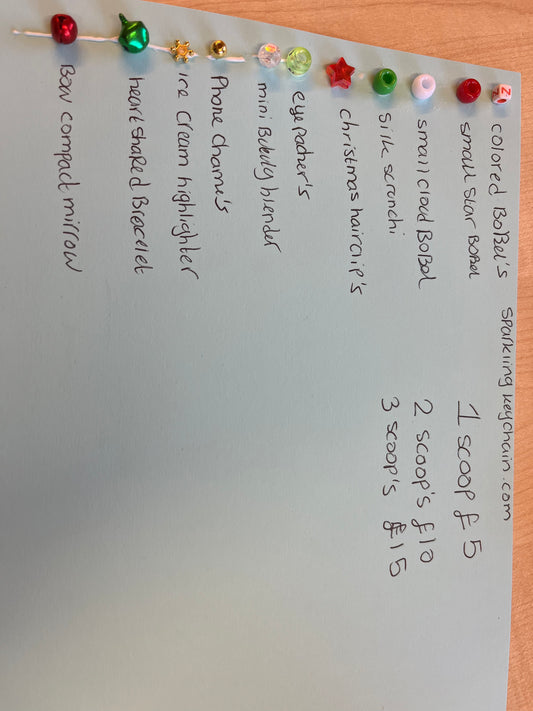 sparkling keychain.com
colored BoBel's
small Star BoBel
small cloud BoBel
silk scrunchi
christmas hairclip's
eye patcher's
mini Bobuly blender
Phone Charm's
ice cream highlighter
heart shaped Bracelet
Bow compact mirrow
1 scoop £5
2 scoop's £10
3 scoop's £15